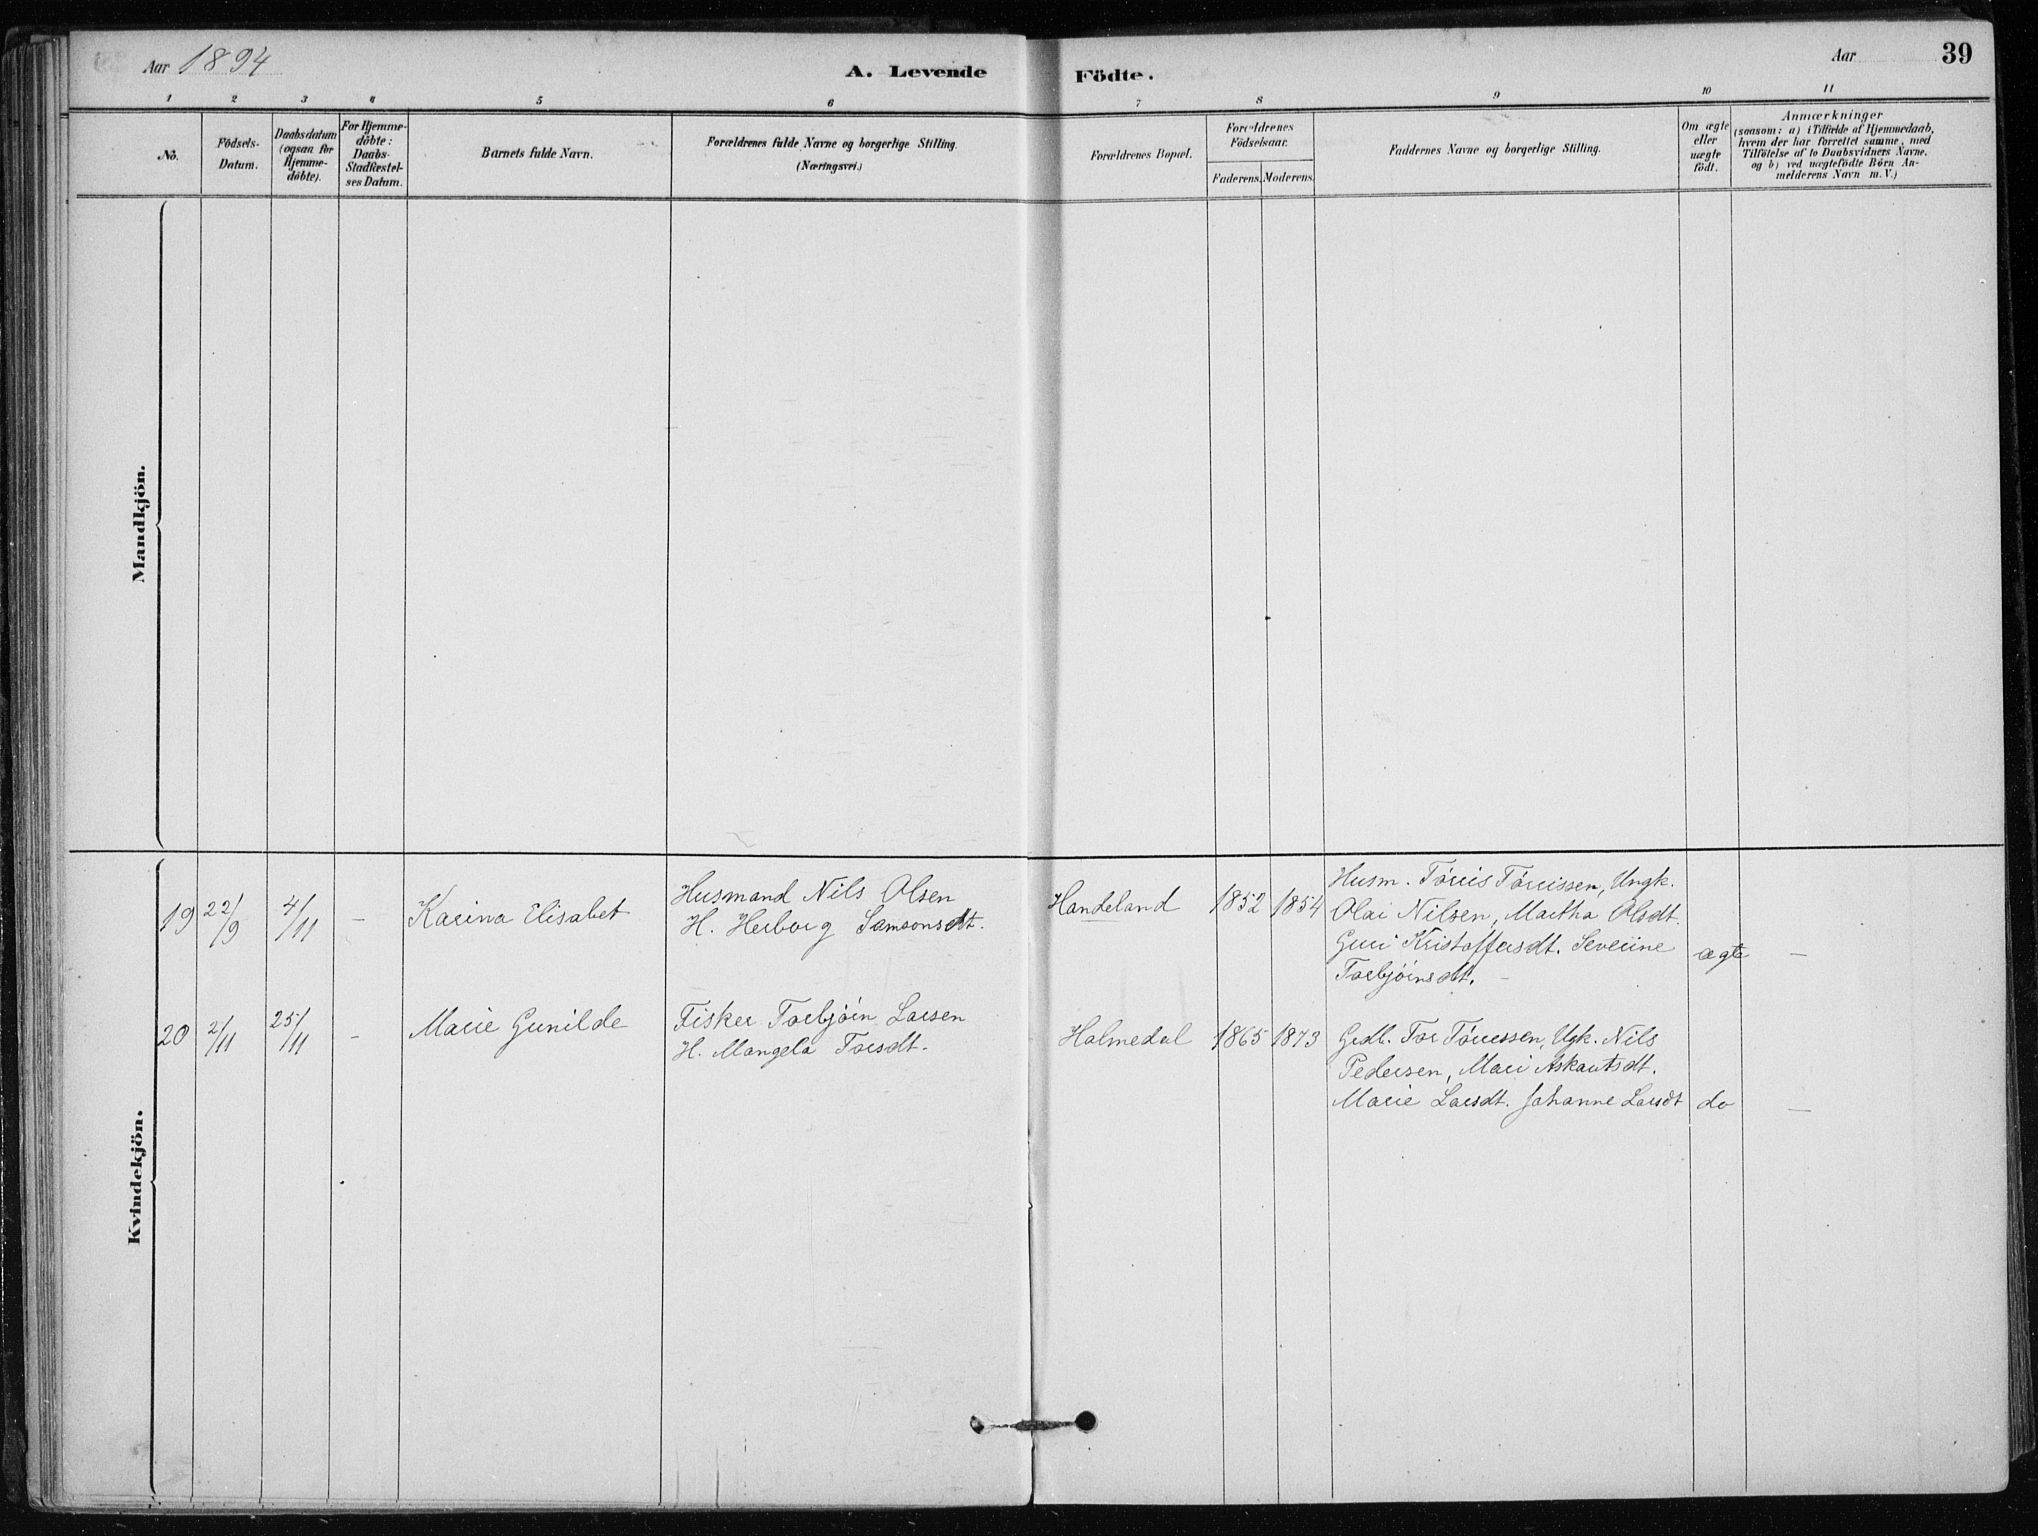 Aar 1894
A. Levende Födte.
Aar
39
1 2 3 4 5 6 7 8 9 10 11
No.
Födsels-Datum.
Daabsdatum (ogsaa for Hjemme-döbte).
For Hjemme-döbte: Daabs-Stadfæstel-ses Datum.
Barnets fulde Navn.
Forældrenes fulde Navne og borgerlige Stilling. (Næringsvei.)
Forældrenes Bopæl.
Forældrenes Födselsaar.
Faderens. Moderens.
Faddernes Navne og borgerlige Stilling.
Om ægte eller uægte födt.
Anmærkninger
(saasom: a) i Tilfælde af Hjemmedaab,
hvem der har forrettet samme, med
Tilföielse af to Daabsvidners Navne,
og b) ved uægtefödte Börn An-
melderens Navn m. V.)
Mandkjön.
Kvindekjön.
19 22/9 4/11 – Karina Elisabet
Husmand Nils Olsen
H. Herborg Samsonsdt.
Handeland 1852 1854
Husm. Tönis Tönissen, Ungk.
Olai Nilsen, Martha Olsdt.
Guri Kristoffersdt. Severine
Torbjörnsdt. –
ægte –
20 2/11 25/11 – Marie Gunilde
Fisker Torbjörn Larsen
H. Mangela Torsdt.
Holmedal 1865 1873
Grdb. Tor Tönessen, Ugk. Nils
Pedersen, Mari Askautsdt.
Marie Larsdt. Johanne Larsdt
do –